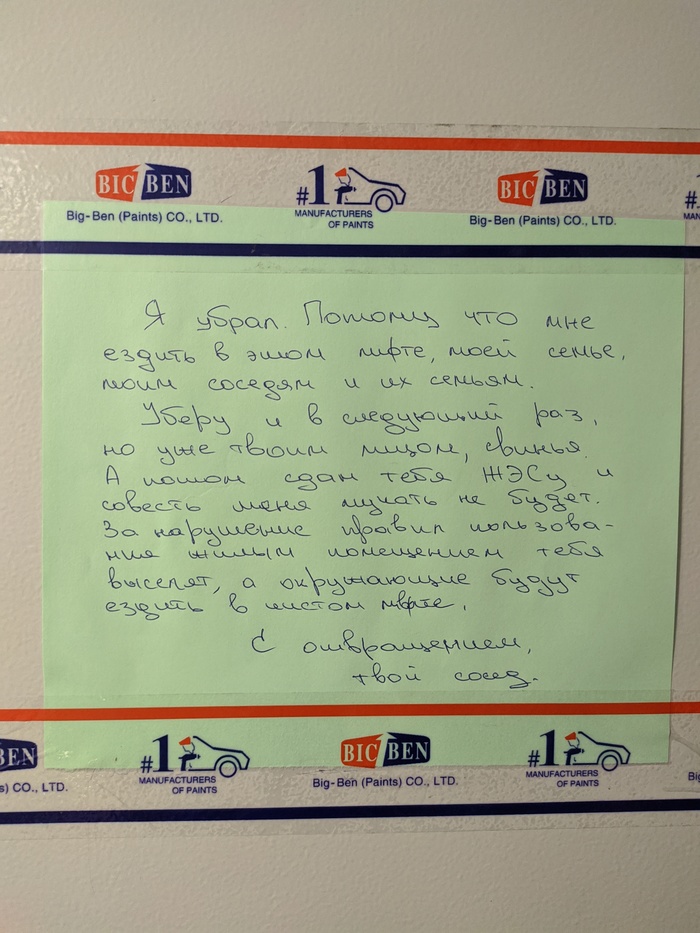 BIG BEN
Big-Ben (Paints) CO., LTD.
#1
MANUFACTURERS
OF PAINTS
BIG BEN
Big-Ben (Paints) CO., LTD.
#
MAN
Я убрал. Потому что мне
ездить в этом лифте, моей семье,
моим соседям и их семьям.
Уберу и в следующий раз,
но уже твоим лицом, свинья.
А потом сдам тебя ЖЭСу и
совесть меня мучать не будет.
За нарушение правил пользова-
ния жилым помещением тебя
выселят, а окружающие будут
ездить в чистом лифте.
С отвращением,
твой сосед.
BEN
s) CO., LTD.
#1
MANUFACTURERS
OF PAINTS
BIG BEN
Big-Ben (Paints) CO., LTD.
#1
MANUFACTURERS
OF PAINTS
Big